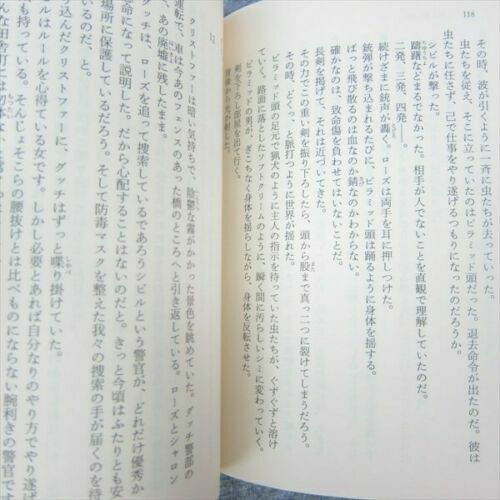 118
その時、波が引くように一斉に虫たちが
虫たちを従え、そこに立っていたのはピラミッド頭だった。退去命令が出たのだ。彼は
虫たちに任さず、己で仕事をやり遂げるつもりになったのだろうか。
シビルが撃った。
躊躇などまるでなかった。相手が人でないことを直観で理解していたのだ。
二発、三発、四発――。
続けざまに銃声が轟く。ローズは両手を耳に押しつけた。
銃弾が撃ち込まれるたびに、ピラミッド頭は踊るように身体を揺する。
ぱっと飛び散るのは血なのか錆なのかわからない。
確かなのは、致命傷を負わせてはいないことだ。
長剣を掲げて、それは近づいてきた。
その力でこの重い剣を振り下ろしたら、頭から股まで真っ二つに裂けてしまうだろう。
その時、どくっ、と脈打つように世界が揺れた。
ピラミッド頭の足元で猟犬のように主人の指示を待っていた虫たちが、ぐずぐずと溶け
ていく。路面に落としたソフトクリームのように、瞬く間に汚らしいシミに変わっていく。
ピラミッドの男が、ぎこちなく身体を揺らしながら、身体を反転させた。
剣を下ろし部屋を出て行く。
背後から光が射した。
クリストファーは暗い気持ちで、陰鬱な霧がかかった景色を眺めていた。グッチ警部の
運転で、車は今あのフェンスのあった橋のところへと引き返している。ローズとシャロン
、あの廃墟に残したまま。
グッチは、ローズを追って捜索しているであろうシビルという警官が、どれだけ優秀か
命になって説明した。だから心配することはないのだと。きっと今頃はふたりとも安
場所に保護しているだろう。そして防毒マスクを整えた我々の捜索の手が届くのを待
いるのだ、と。
き込んだクリストファーに、グッチはずっと喋り掛けていた。
ルはルールを心得ている女です。しかし必要とあれば自分なりのやり方でやり遂げ
も持っている。そんじょそこらの腰抜けとは比べものにならない腕利きの警官です